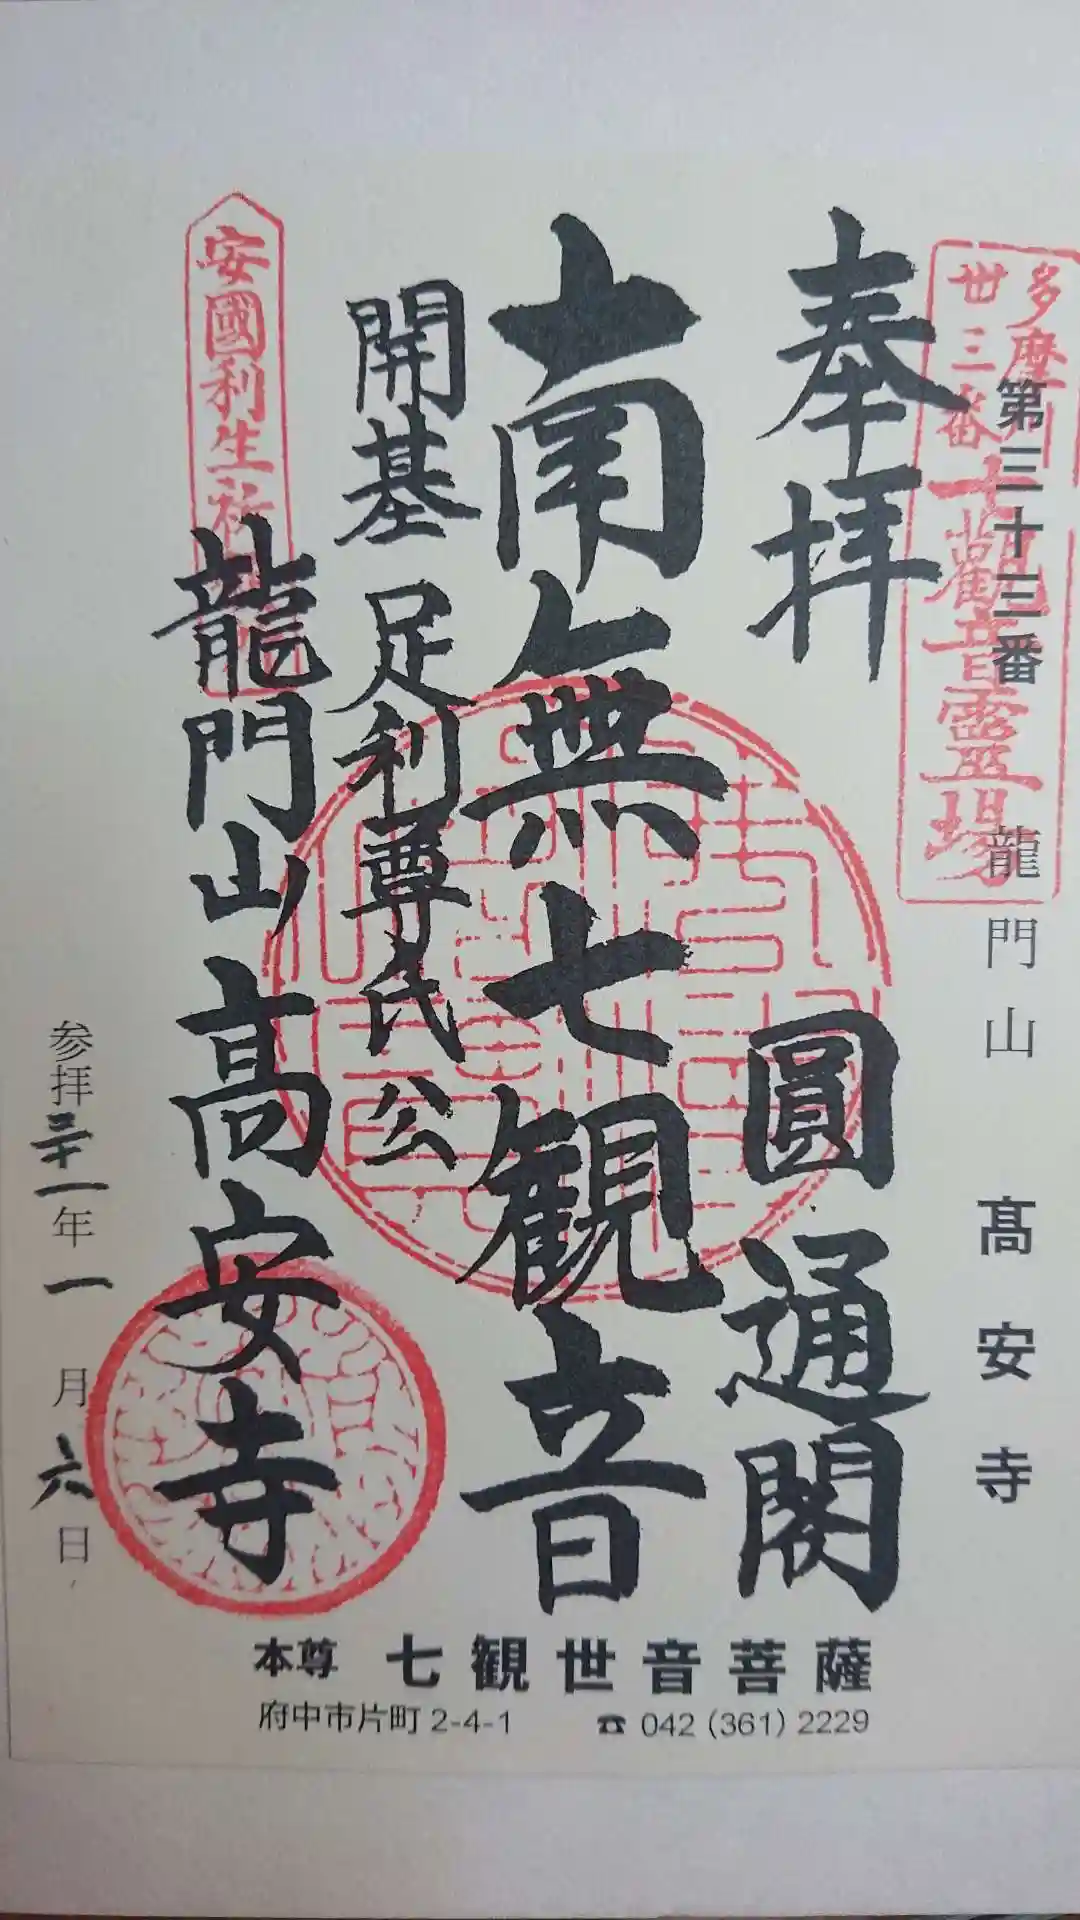 多摩川
丗三番
観音霊場
第三十三番 龍門山 髙安寺
奉拝 圓通閣
南無七観音
開基 足利尊氏公
安國利生祈
龍門山高安寺
参拝三十一年一月六日
本尊 七観世音菩薩
府中市片町 2-4-1 ☎ 042 (361) 2229